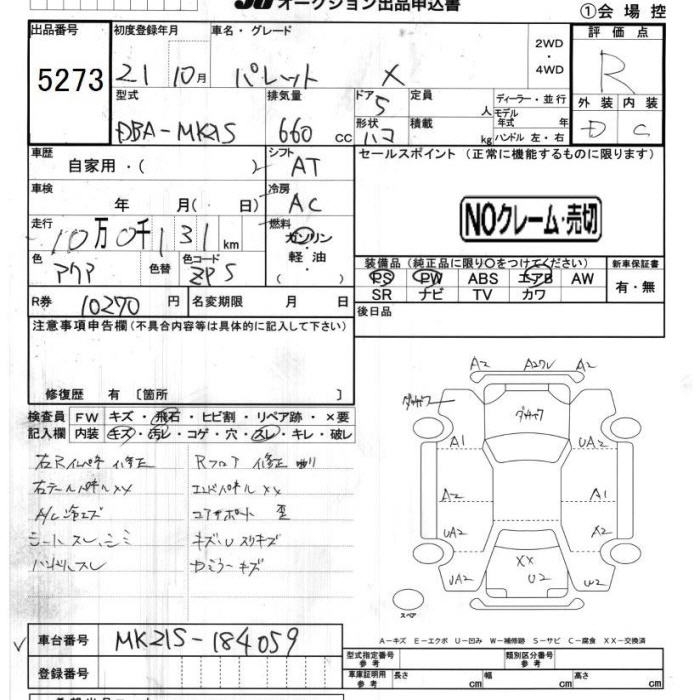 オークション出品申込書
①会場控
出品番号
5273
初度登録年月
21 10月
車名・グレード
パレット X
2WD
・
4WD
評価点
R
外装 内装
D C
型式
DBA-MK21S
排気量
660 cc
ドア
5
定員
人
形状
ハコ
積載
kg
ディーラー・並行
モデル
年式 年
ハンドル 左・右
車歴
自家用・( )
シフト
AT
セールスポイント (正常に機能するものに限ります)
NOクレーム・売切
車検
年 月( 日)
冷房
AC
走行
10万0千131km
燃料
ガソリン
軽油
( )
色
アクア
色替
色コード
ZPS
装備品(純正品に限り○をつけてください)
PS PW ABS エアB AW
SR ナビ TV カワ
新車保証書
有・無
R券
10270円
名変期限 月 日
後日品
注意事項申告欄(不具合内容等は具体的に記入して下さい)
修復歴 有〔箇所 〕
検査員
記入欄
FW キズ・飛石・ヒビ割・リペア跡・×要
内装 キズ・汚レ・コゲ・穴・スレ・キレ・破レ
右Rインパネ 修正
Rフロア 修正
右テールパネル XX
エンドパネル XX
A/C冷エズ
コアサポート 歪
シート スレ、シミ
キズ・Uスリキズ
ハンドルスレ
A2 A2ワレ A2
A1
UA2
A2
A1
UA2
A2
XX
U2
UA2
W2
スペア
A-キズ E-エクボ U-凹み W-補修跡 S-サビ C-腐食 XX-交換済
車台番号
MK21S-184059
型式指定番号
参考
類別区分番号
参考
登録番号
車庫証明用
参考
長さ cm
幅 cm
高さ cm